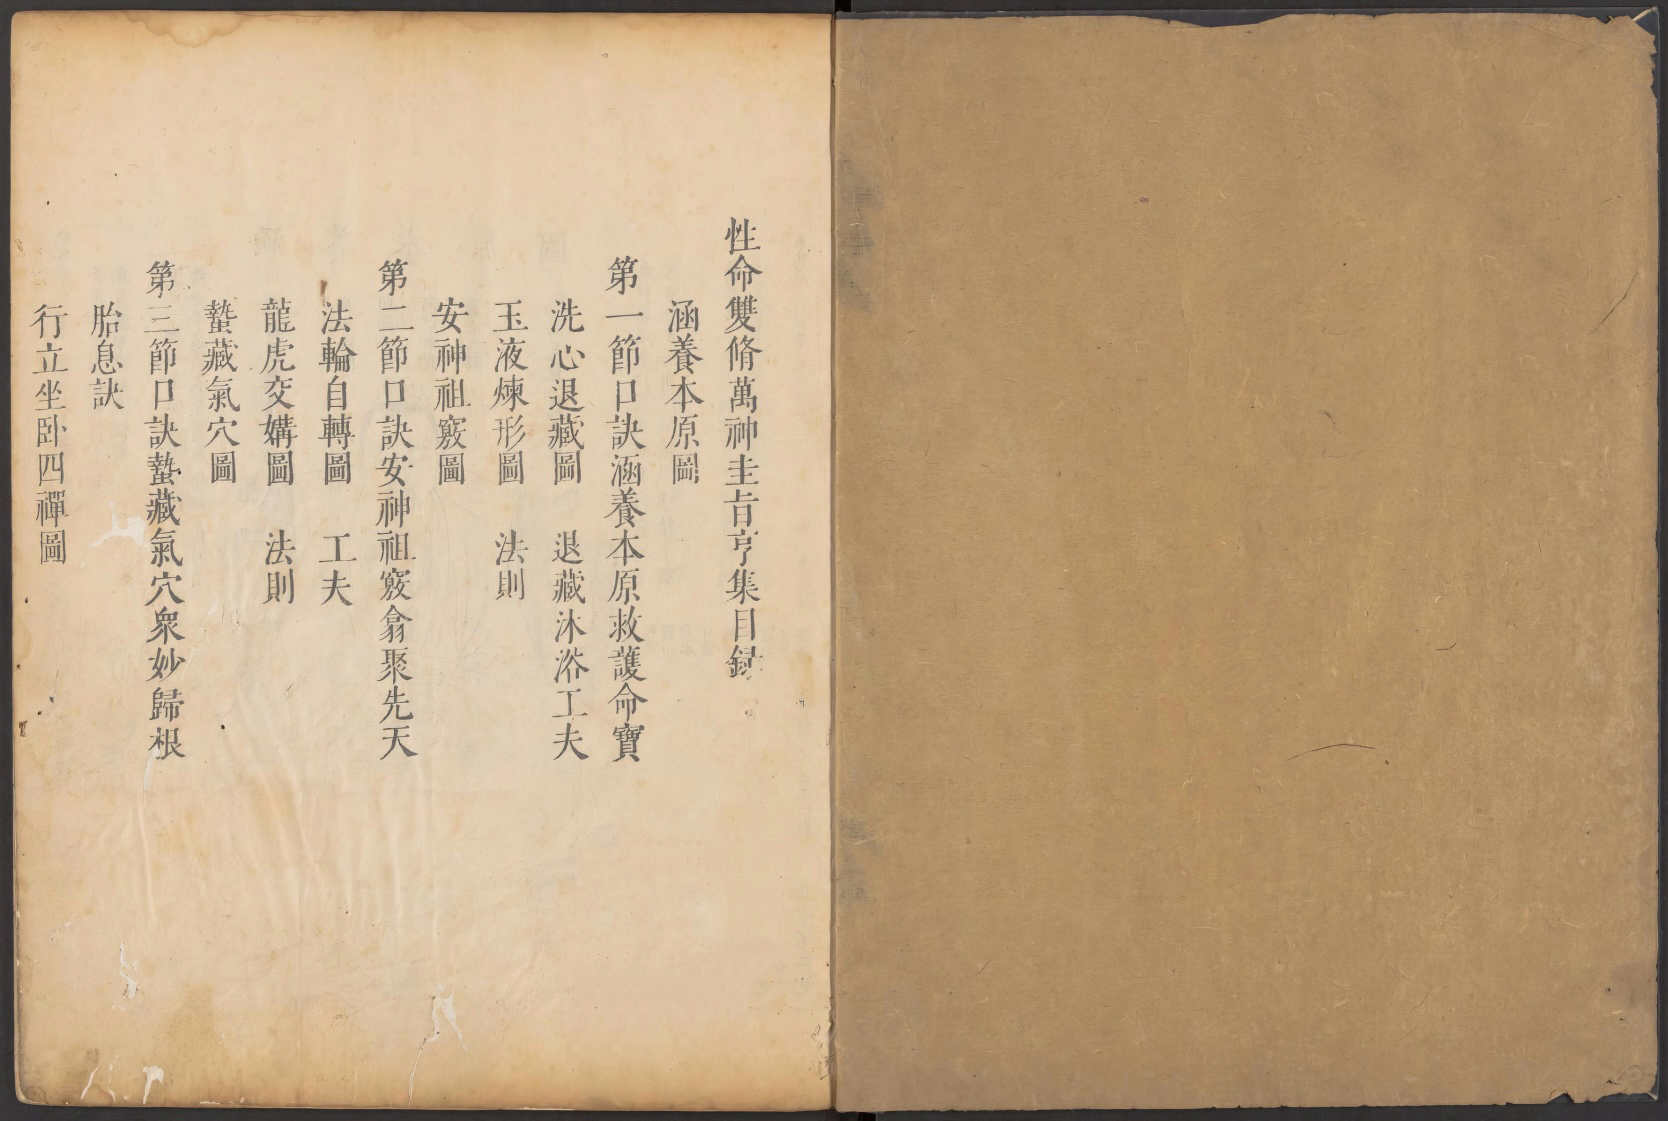 性命雙脩萬神圭旨亨集目録
涵養本原圖
第一節口訣涵養本原救護命寶
洗心退藏圖　退藏沐浴工夫
玉液煉形圖　法則
安神祖竅圖
第二節口訣安神祖竅翕聚先天
法輪自轉圖　工夫
龍虎交媾圖　法則
蟄藏氣穴圖
第三節口訣蟄藏氣穴衆妙歸根
胎息訣
行立坐卧四禪圖